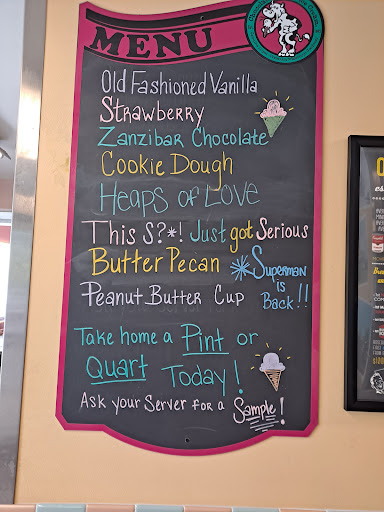 MENU
Old Fashioned Vanilla
Strawberry
Zanzibar Chocolate
Cookie Dough
Heaps of Love
This S?*! Just got Serious
Butter Pecan
*Superman is Back!!
Peanut Butter Cup
Take home a Pint or
Quart Today!
Ask your Server for a Sample!